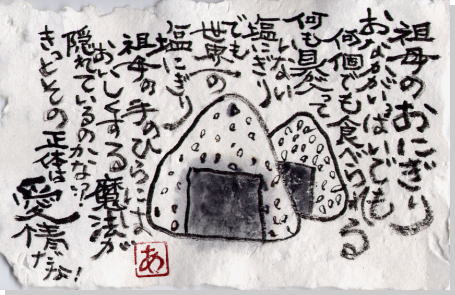 祖母のおにぎり
おなかがいっぱいでも
何個でも食べられる
何も具入って
いない
塩にぎり
でも
世界一の
塩にぎり
祖母の手のひらには、
おいしくする魔法が
隠れているのかな!?
きっとその正体は
愛情だな!
あ